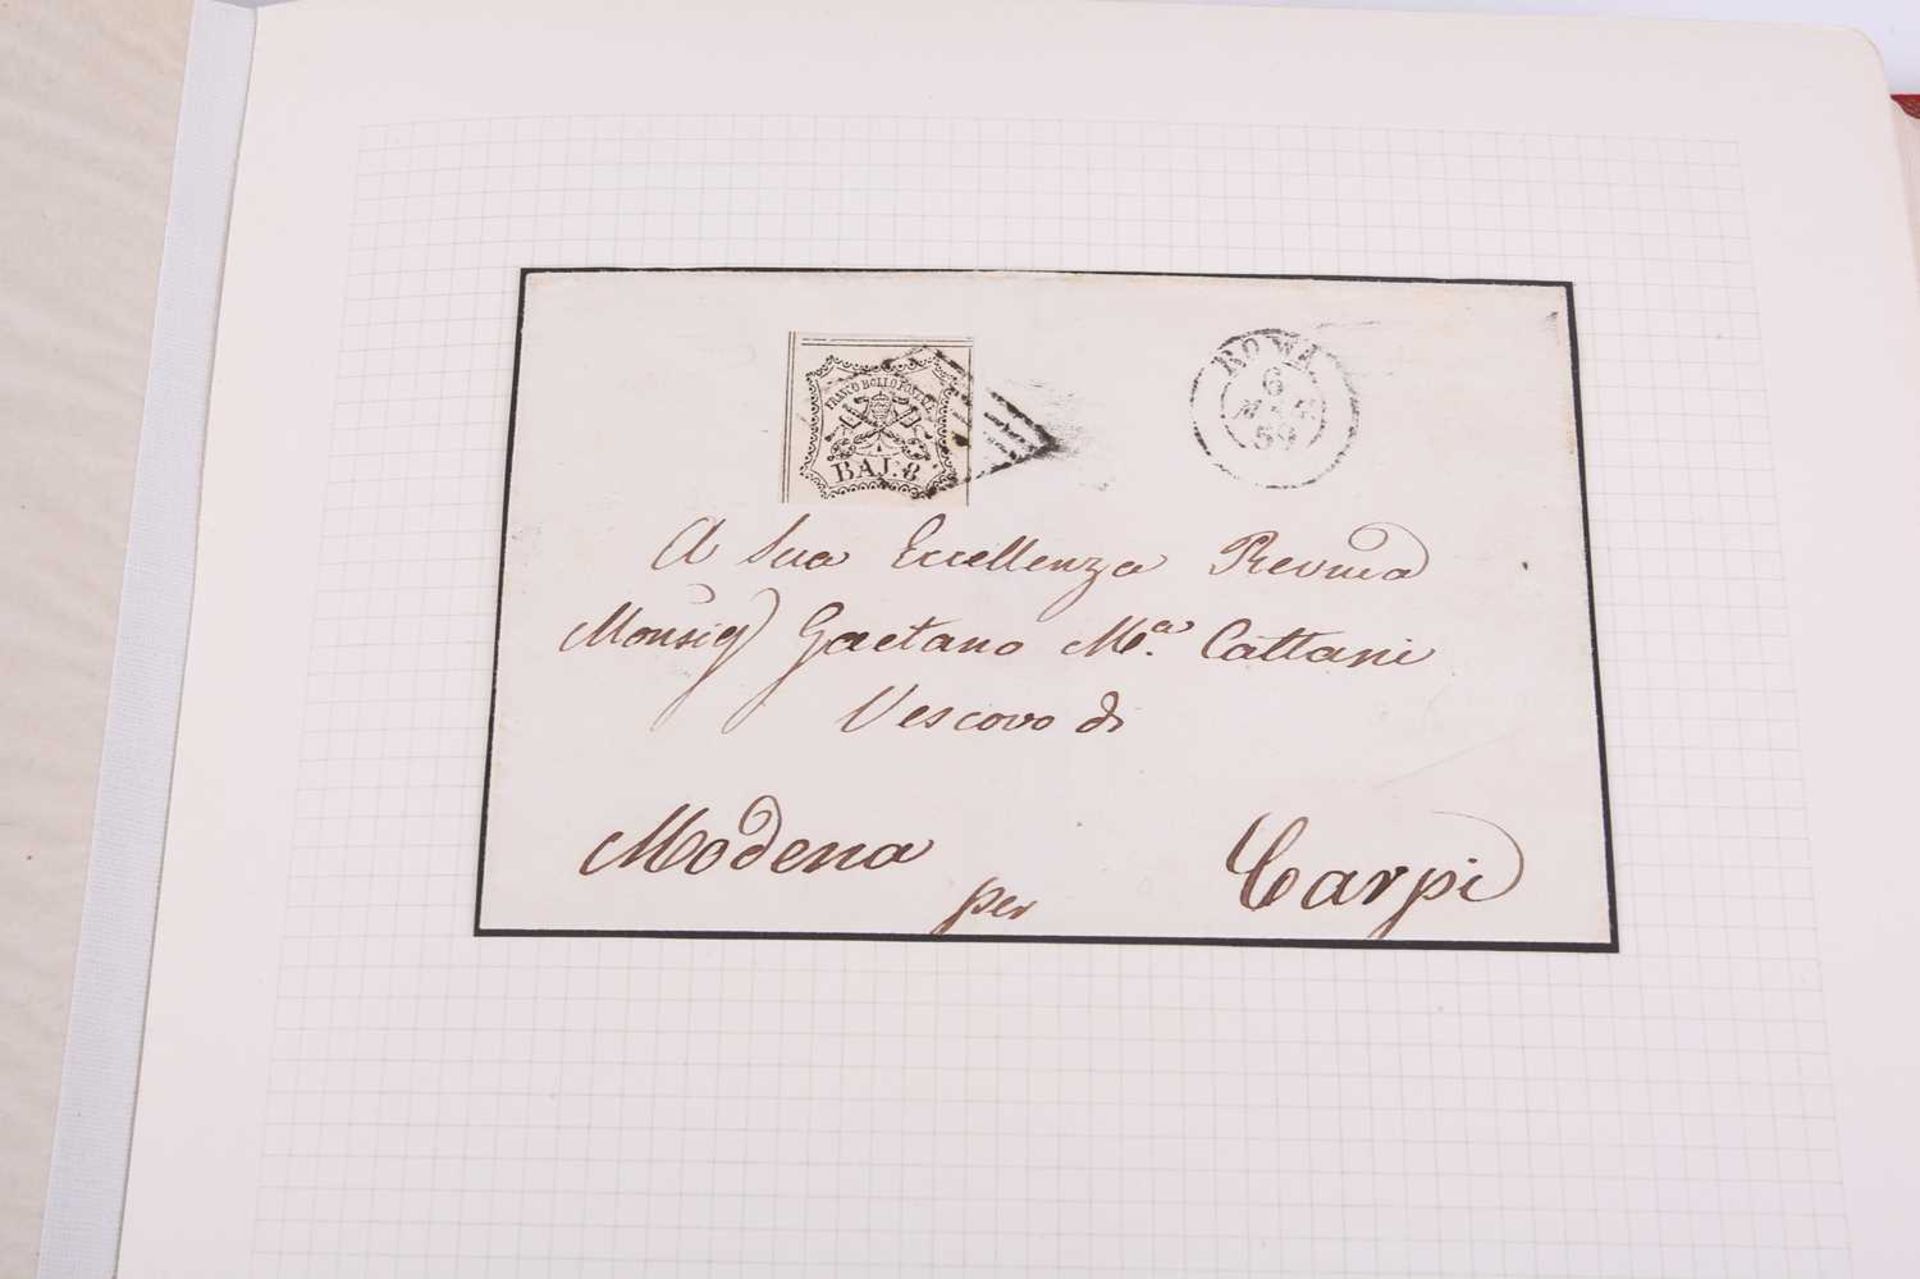 FRANCO BOLLO POSTALE
BAJ. 8
ROMA
6
59
A Sua Eccellenza Revma
Monsig Gaetano Ma. Cattani
Vescovo di
Modena per Carpi